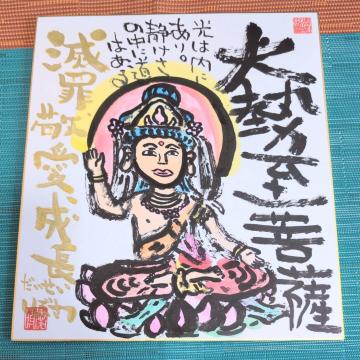 大勢至菩薩
光は内に
あり。
静けさ
の中に道
はある
滅罪敬愛成長
だいせいしぼさつ